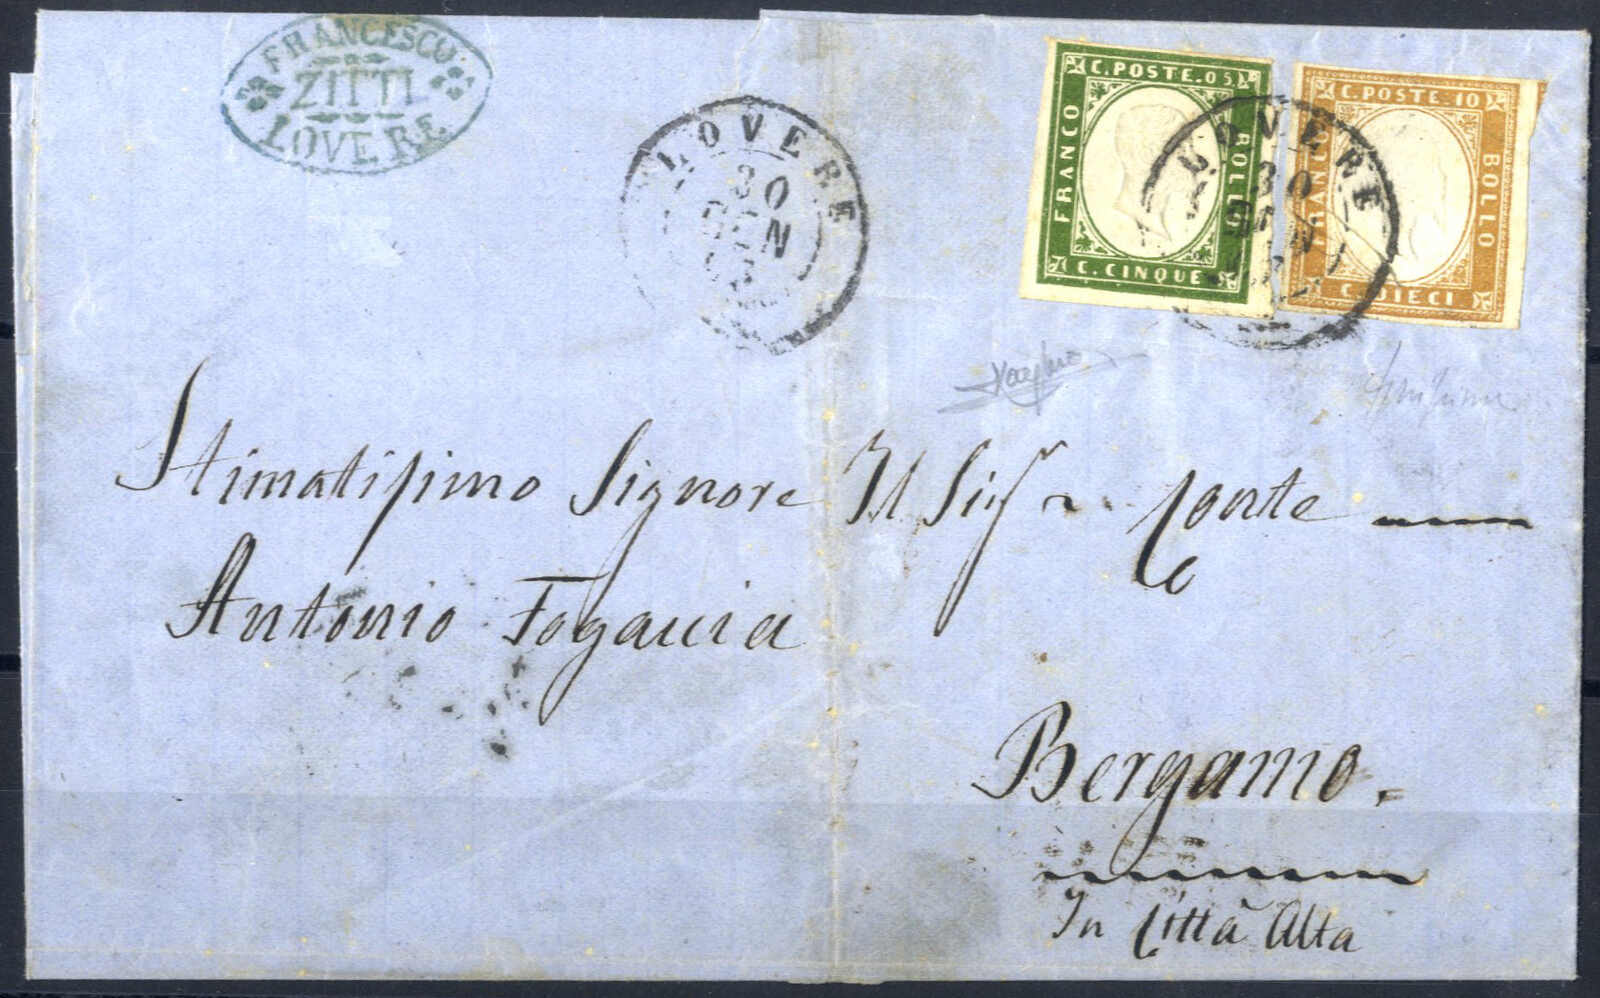 FRANCESCO
ZITTI
LOVERE
LOVERE
30
GEN
63
C. POSTE. 05
FRANCO
BOLLO
C. CINQUE
C. POSTE. 10
FRANCO
BOLLO
C. DIECI
LOVERE
30
GEN
Stimatissimo Signore Il Sigr Conte
Antonio Fogaccia
Bergamo.
In Città Alta